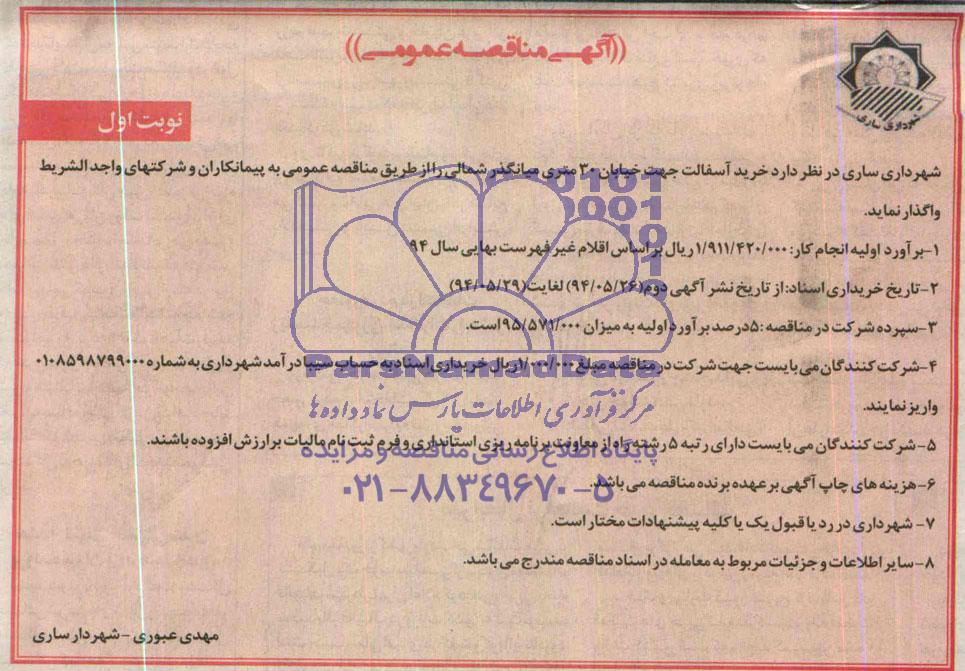 ((آگهی مناقصه عمومی))
شهرداری ساری
نوبت اول
شهرداری ساری در نظر دارد خرید آسفالت جهت خیابان ۳۰ متری میانگذر شمالی را از طریق مناقصه عمومی به پیمانکاران و شرکتهای واجد الشریط
واگذار نماید.
۱-برآورد اولیه انجام کار: ۱/۹۱۱/۴۲۰/۰۰۰ ریال بر اساس اقلام غیر فهرست بهایی سال ۹۴
۲-تاریخ خریداری اسناد: از تاریخ نشر آگهی دوم (۹۴/۰۵/۲۶) لغایت (۹۴/۰۵/۲۹)
۳-سپرده شرکت در مناقصه: ۵درصد برآورد اولیه به میزان ۹۵/۵۷۱/۰۰۰ است.
۴-شرکت کنندگان می بایست جهت شرکت در مناقصه مبلغ ۱/۰۰۰/۰۰۰ ریال خریداری اسناد به حساب سیبا درآمد شهرداری به شماره ۰۱۰۸۵۹۸۷۹۹۰۰۰
واریز نمایند.
۵-شرکت کنندگان می بایست دارای رتبه ۵ رشته راه از معاونت برنامه ریزی استانداری و فرم ثبت نام مالیات بر ارزش افزوده باشند.
۶-هزینه های چاپ آگهی بر عهده برنده مناقصه می باشد.
۷- شهرداری در رد یا قبول یک یا کلیه پیشنهادات مختار است.
۸-سایر اطلاعات و جزئیات مربوط به معامله در اسناد مناقصه مندرج می باشد.
مهدی عبوری - شهردار ساری
ParsNamadData
مرکز فرآوری اطلاعات پارس نماد داده ها
پایگاه اطلاع رسانی مناقصه و مزایده
۰۲۱-۸۸۳۴۹۶۷۰-۵